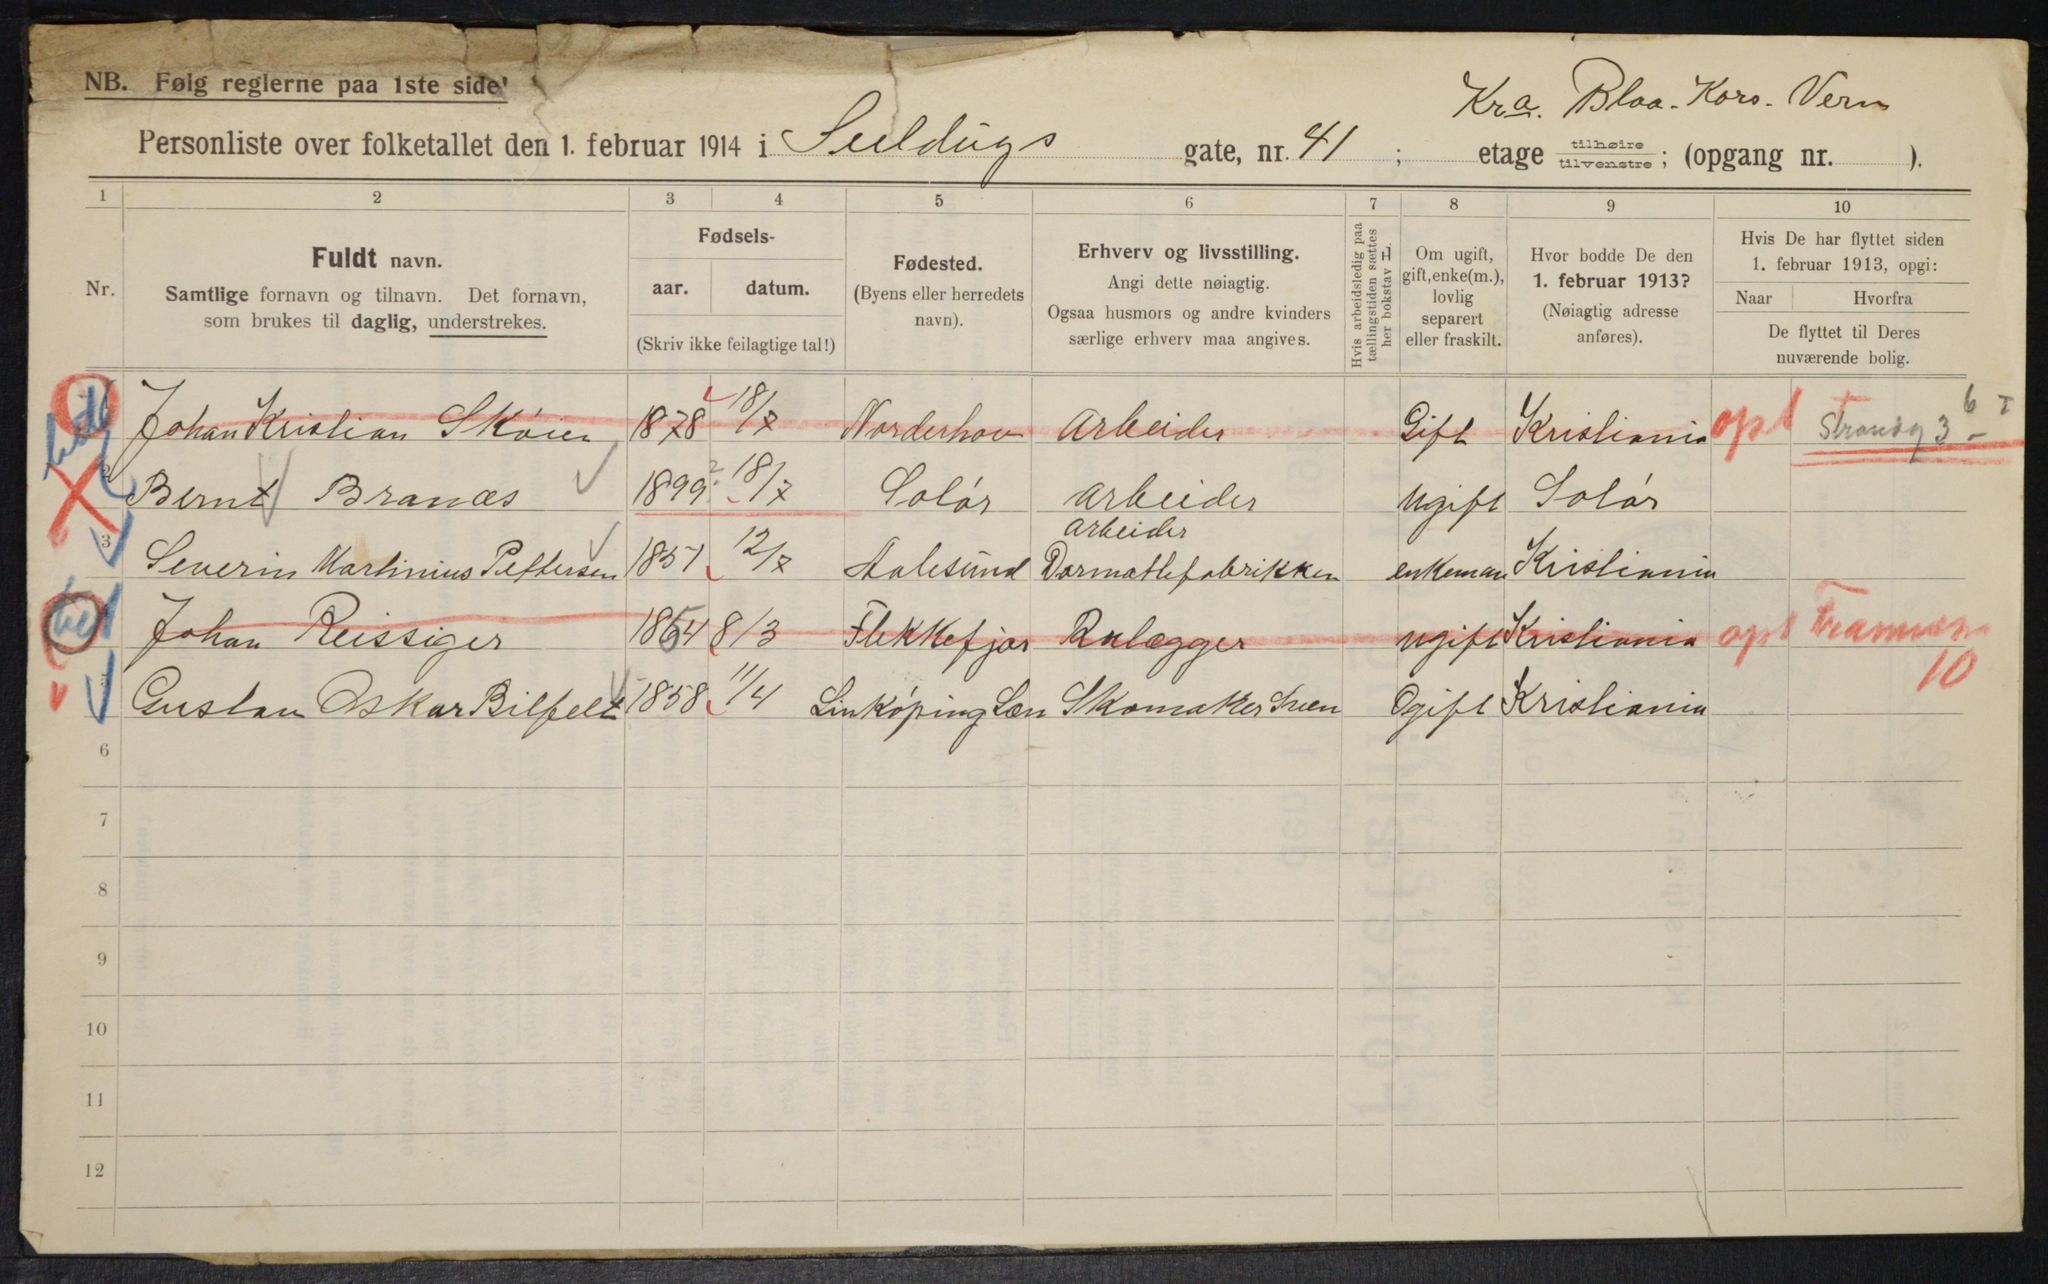 NB. Følg reglerne paa 1ste side!
Kra. Blaa-Kors-Vern
Personliste over folketallet den 1. februar 1914 i Suldugs gate, nr. 41 ; etage tilhøire tilvenstre; (opgang nr. ).
1 2 3 4 5 6 7 8 9 10
Nr.
Fuldt navn.
Samtlige fornavn og tilnavn. Det fornavn,
som brukes til daglig, understrekes.
Fødsels-
aar. datum.
(Skriv ikke feilagtige tal!)
Fødested.
(Byens eller herredets
navn).
Erhverv og livsstilling.
Angi dette nøiagtig.
Ogsaa husmors og andre kvinders
særlige erhverv maa angives.
Hvis arbeidsledig paa
tællingstiden sættes
her bokstav L
Om ugift,
gift, enke(m.),
lovlig
separert
eller fraskilt.
Hvor bodde De den
1. februar 1913?
(Nøiagtig adresse
anføres).
Hvis De har flyttet siden
1. februar 1913, opgi:
Naar Hvorfra
De flyttet til Deres
nuværende bolig.
Johan Kristian Skøien 1878 18/7 Norderhov Arbeider Gift Kristiania opt Strandg 3
2 Bernt Branæs 1899 18/7 Solør Arbeider Ugift Solør
3 Severin Martinius Pettersen 1851 12/7 Aalesund Arbeider Dormatlefabrikken enkeman Kristiania
Johan Reissiger 1864 8/3 Flekkefjor Rulægger ugift Kristiania opt
10
5 Gustav Oskar Bilfelt 1858 11/4 Linkøping Læn Skomaker Sven Ogift Kristiania
6
7
8
9
10
11
12